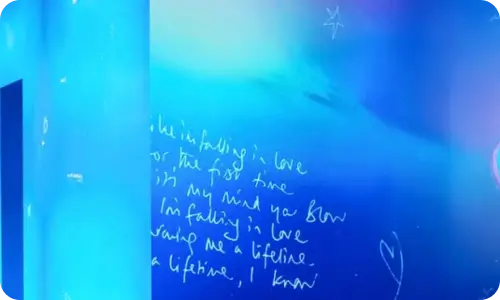 like im falling in love
or the first time
it's my mind you Blow
I'm falling in love
me a lifeline
a lifetime, I know